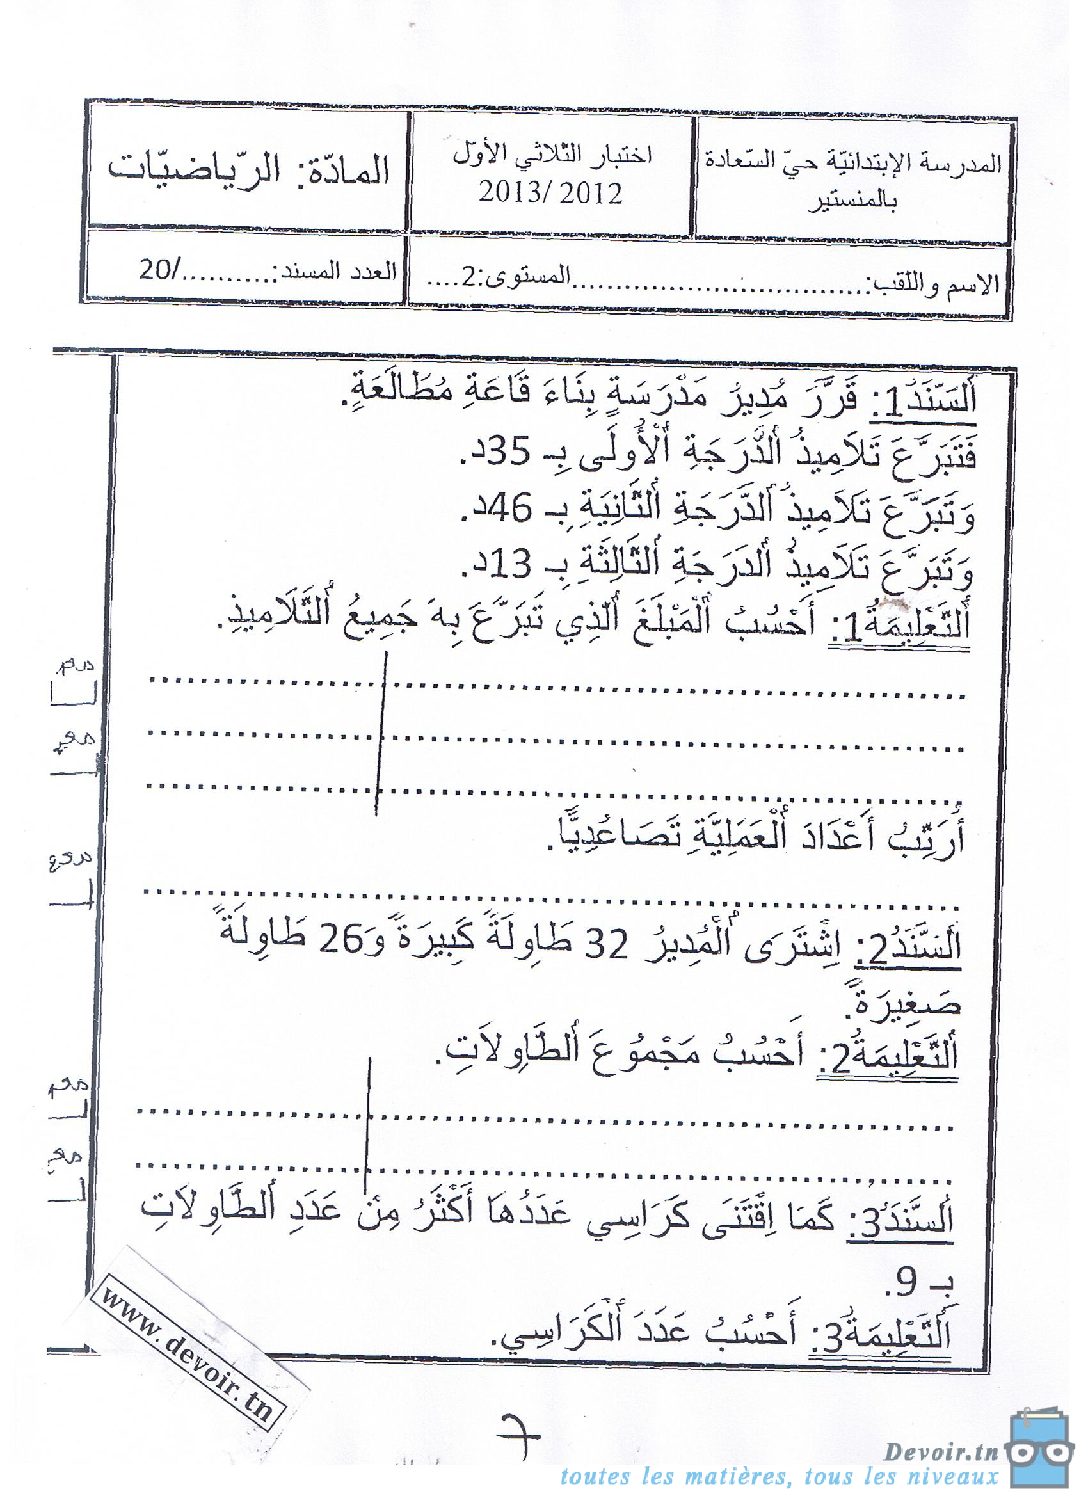 المدرسة الإبتدائيّة حيّ السّعادة بالمنستير
اختبار الثلاثي الأوّل
2013/ 2012
المادّة: الرّياضيّات
الاسم واللّقب:................................المستوى:2....
العدد المسند:........../20
اَلسَّنَدُ1: قَرَّرَ مُدِيرُ مَدْرَسَةٍ بِنَاءَ قَاعَةِ مُطَالَعَةٍ.
فَتَبَرَّعَ تَلَامِيذُ ٱلدَّرَجَةِ ٱلْأُولَى بِـ 35د.
وَتَبَرَّعَ تَلَامِيذُ ٱلدَّرَجَةِ ٱلثَّانِيَةِ بِـ 46د.
وَتَبَرَّعَ تَلَامِيذُ ٱلدَرَجَةِ ٱلثَّالِثَةِ بِـ 13د.
اَلتَّعْلِيمَةُ1: أَحْسُبُ ٱلْمَبْلَغَ ٱلَّذِي تَبَرَّعَ بِهَ جَمِيعُ ٱلتَّلَامِيذِ.
أُرَتِّبُ أَعْدَادَ ٱلْعَمَلِيَّةِ تَصَاعُدِيًّا.
اَلسَّنَدُ2: اِشْتَرَى ٱلْمُدِيرُ 32 طَاوِلَةً كَبِيرَةً وَ26 طَاوِلَةً
صَغِيرَةً.
اَلتَّعْلِيمَةُ2: أَحْسُبُ مَجْمُوعَ ٱلطَّاوِلَاتِ.
اَلسَّنَدُ3: كَمَا اِقْتَنَى كَرَاسِي عَدَدُهَا أَكْثَرُ مِنْ عَدَدِ ٱلطَّاوِلَاتِ
بِـ 9.
اَلتَّعْلِيمَةُ3: أَحْسُبُ عَدَدَ ٱلْكَرَاسِي.
www.devoir.tn
Devoir.tn
toutes les matières, tous les niveaux